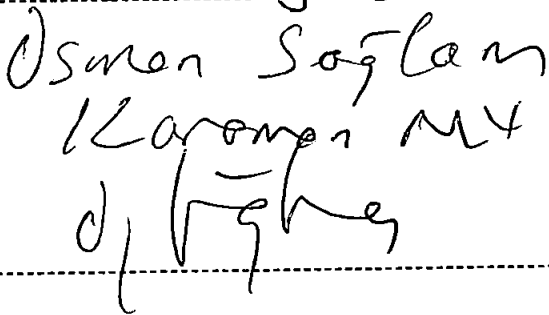 Osman Sağlam
Karaman MV